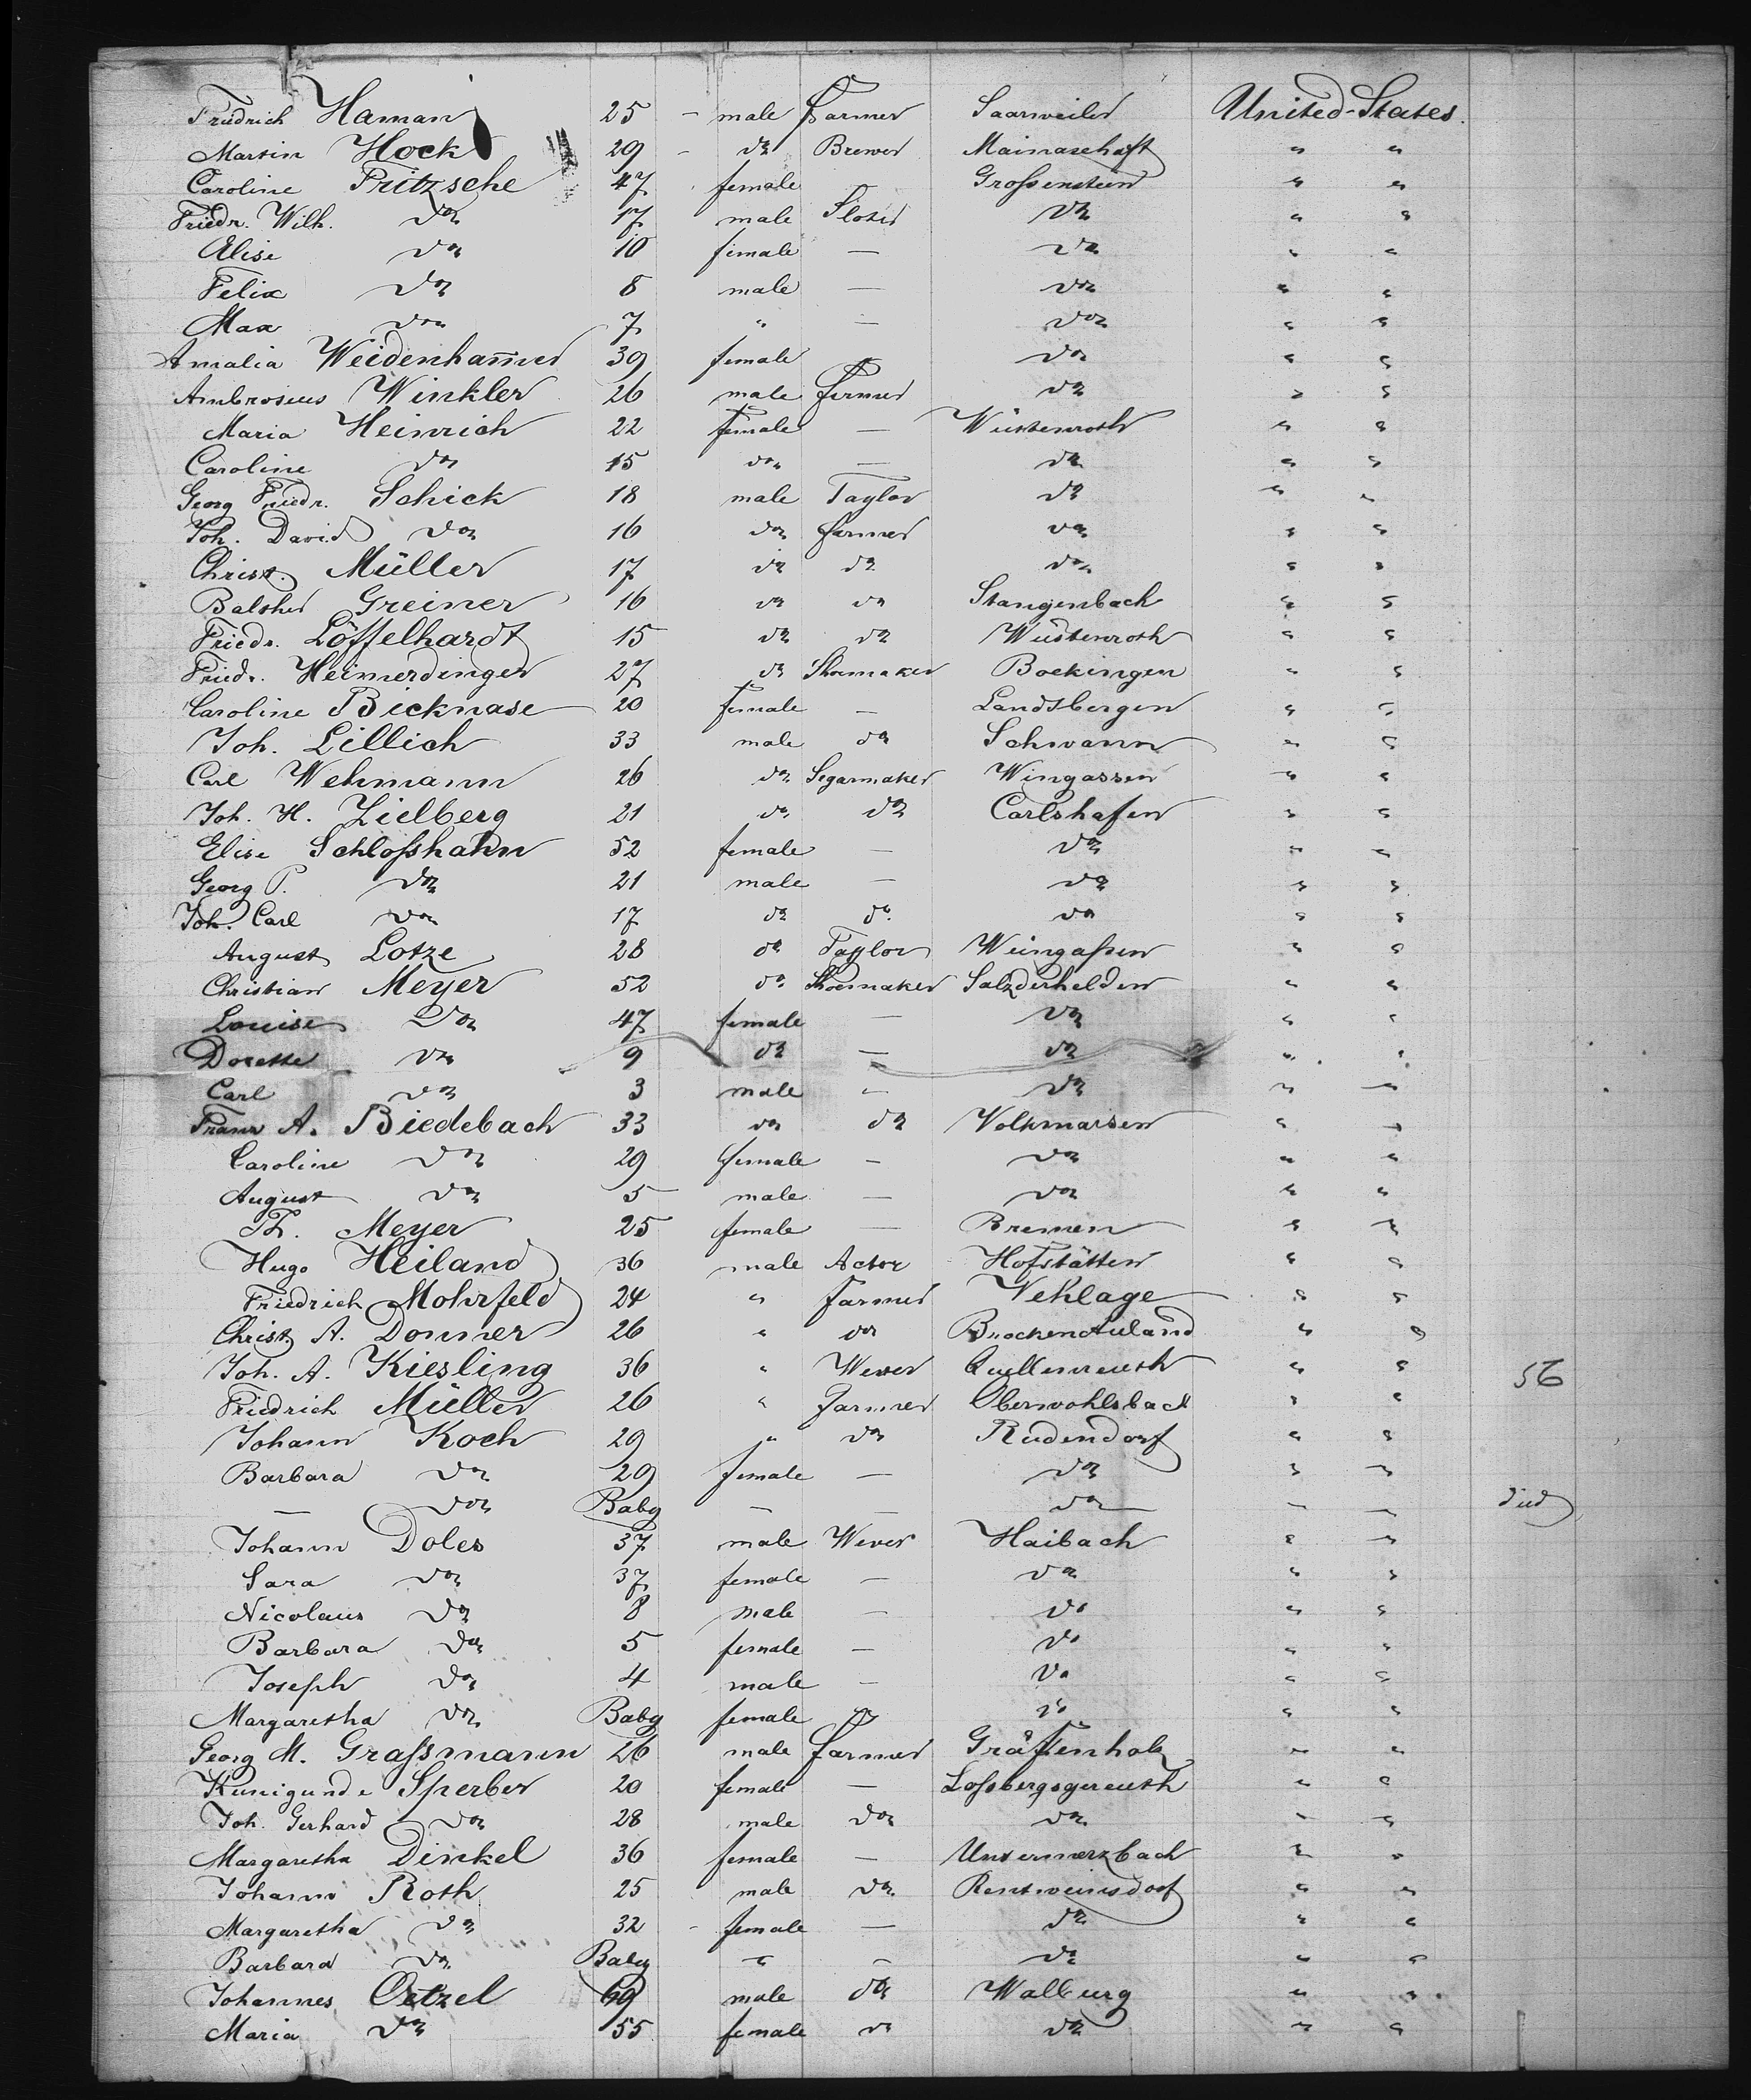 Friedrich Haman 25 - male Farmer Saarweiler United-States.
Martin Hock 29 - do Brewer Mainaschaft " "
Caroline Pritzsche 47 female — Großenstein " "
Friedr. Wilh. do 17 male do " "
Elise do 10 female — do " "
Felix do 8 male — do " "
Max do 7 " — do " "
Amalia Weidenham̅er 39 female — do " "
Ambrosius Winkler 26 male Farmer do " "
Maria Heinrich 22 female — Wüstenroth " "
Caroline do 15 do — do " "
Georg Friedr. Schick 18 male Taylor do " "
Joh. David do 16 do farmer do " "
Christ. Müller 17 do do do " "
Balther Greiner 16 do do Stangenbach " "
Friedr. Löffelhardt 15 do do Wüstenroth " "
Friedr. Heimerdinger 27 do Shoemaker Boekingen " "
Caroline Bicknase 20 female — Landsbergen " "
Joh. Lillich 33 male do Schwann " "
Carl Wehmann 26 do Segarmaker Wingassen " "
Joh. H. Zielberg 21 do do Carlshafen " "
Elise Schloßhahn 52 female — do " "
Georg P. do 21 male — do " "
Joh. Carl do 17 do do do " "
August Lotze 28 do Taylor Weingaßen " "
Christian Meyer 52 do Shoemaker Salzderhelden " "
Louise do 47 female — do " "
Dorette do 9 do — do " "
Carl do 3 male — do " "
Franz A. Biedebach 33 do do Volkmarsen " "
Caroline do 29 female — do " "
August do 5 male — do " "
Th. Meyer 25 female — Bremen " "
Hugo Heiland 36 male Actor Hofstätten " "
Friedrich Mohrfeld 24 " Farmer Vehlage " "
Christ. A. Donner 26 " do " "
Joh. A. Kiesling 36 " Wever Quellenreuth " " 56
Friedrich Müller 26 " Farmer Oberwohlsbach " "
Johann Koch 29 " do Rudendorf " "
Barbara do 29 female — do " "
— do Baby — — do — — died
Johann Doles 37 male Wever Haibach " "
Sara do 37 female — do " "
Nicolaus do 8 male — do " "
Barbara do 5 female — do " "
Joseph do 4 male — do " "
Margaretha do Baby female do " "
Georg M. Graßmann 26 male farmer Gräfenholz " "
Kunigunde Sperber 20 female — Loßbergsgereuth " "
Joh. Gerhard do 28 male do do " "
Margaretha Dinkel 36 female — Untermerzbach " "
Johann Roth 25 male do Rentweinsdorf " "
Margaretha do 32 - female — do " "
Barbara do Baby " — do " "
Johannes Oetzel 69 male do Walburg " "
Maria do 55 female do do " "